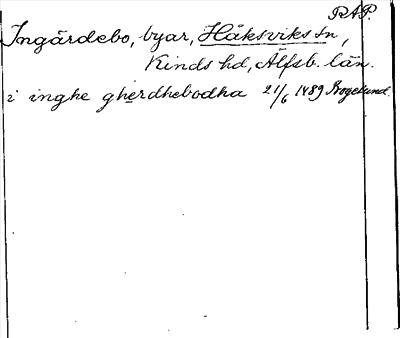 RAP.
Ingärdebo, byar, Håksviks sn,
Kinds hd, Älfsb. län.
i inghe gherdhebodha 21/6 1489